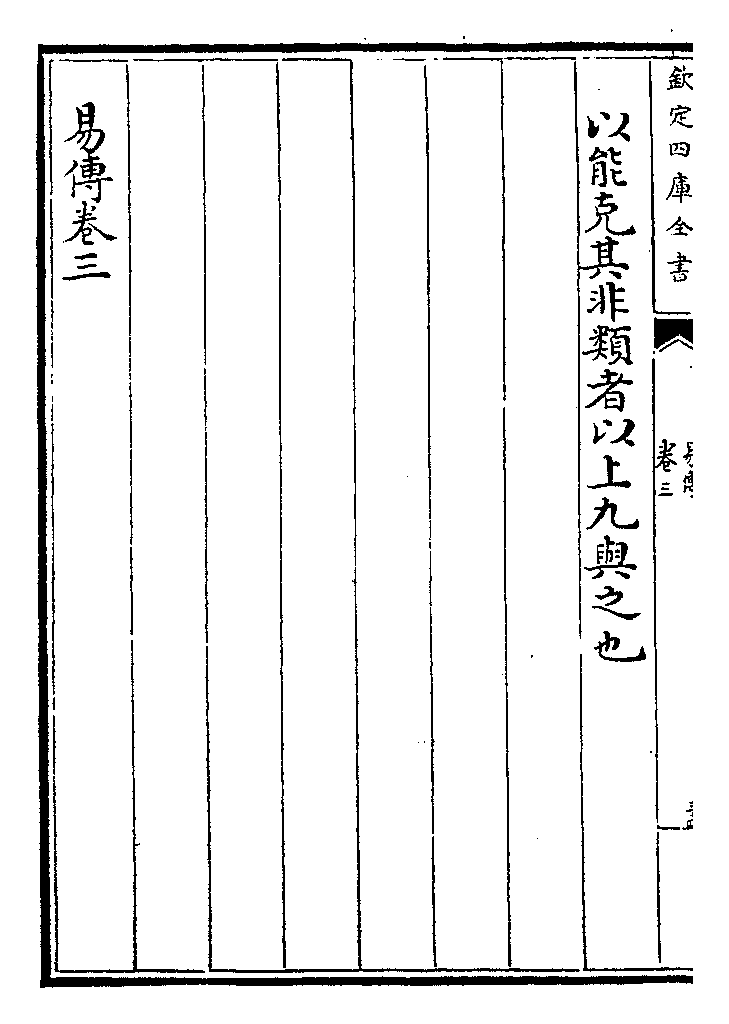 欽定四庫全書
易傳
卷三
以能克其非類者以上九與之也
易傳卷三